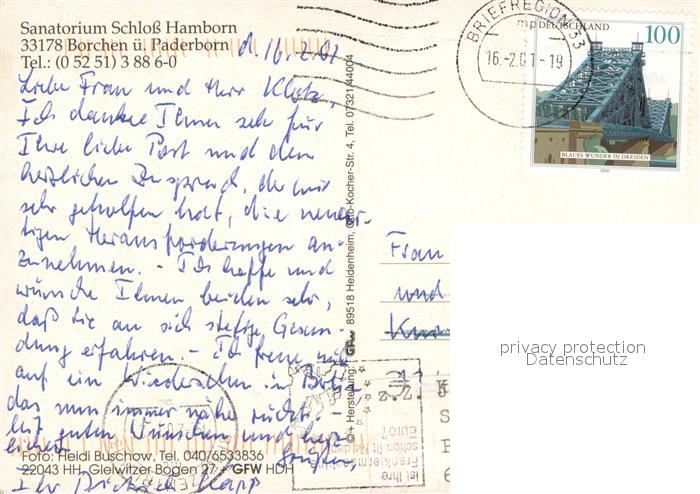 Sanatorium Schloß Hamborn
33178 Borchen ü. Paderborn
Tel.: (0 52 51) 3 88 6-0
d. 16.2.01
Liebe Frau und Herr Klotz,
Ich danke Ihnen sehr für
Ihre liebe Post und den
herzlichen Zuspruch, der mir
sehr geholfen hat, die neuar-
tigen Herausforderungen an-
zunehmen. - Ich hoffe und
wünsche Ihnen beiden sehr,
daß Sie an sich stetige Gesun-
dung erfahren. - Ich freue mich
auf ein Wiedersehen in
das nun immer näher rückt.
Mit guten Wünschen und herz-
lichen Grüßen
Ihr
Foto: Heidi Buschow, Tel. 040/6533836
22043 HH, Gleiwitzer Bogen 27 + GFW HDH
© + Herstellung: GFW 89518 Heidenheim, Otto-Kocher-Str. 4, Tel. 07321/44004
BRIEFREGION 33
16.-2.01-19
DEUTSCHLAND
100
BLAUES WUNDER IN DRESDEN
2000
Frau
und
z. Z.
Ist Ihre
Frankiermaschine
schon fit für den
Euro?
privacy protection
Datenschutz